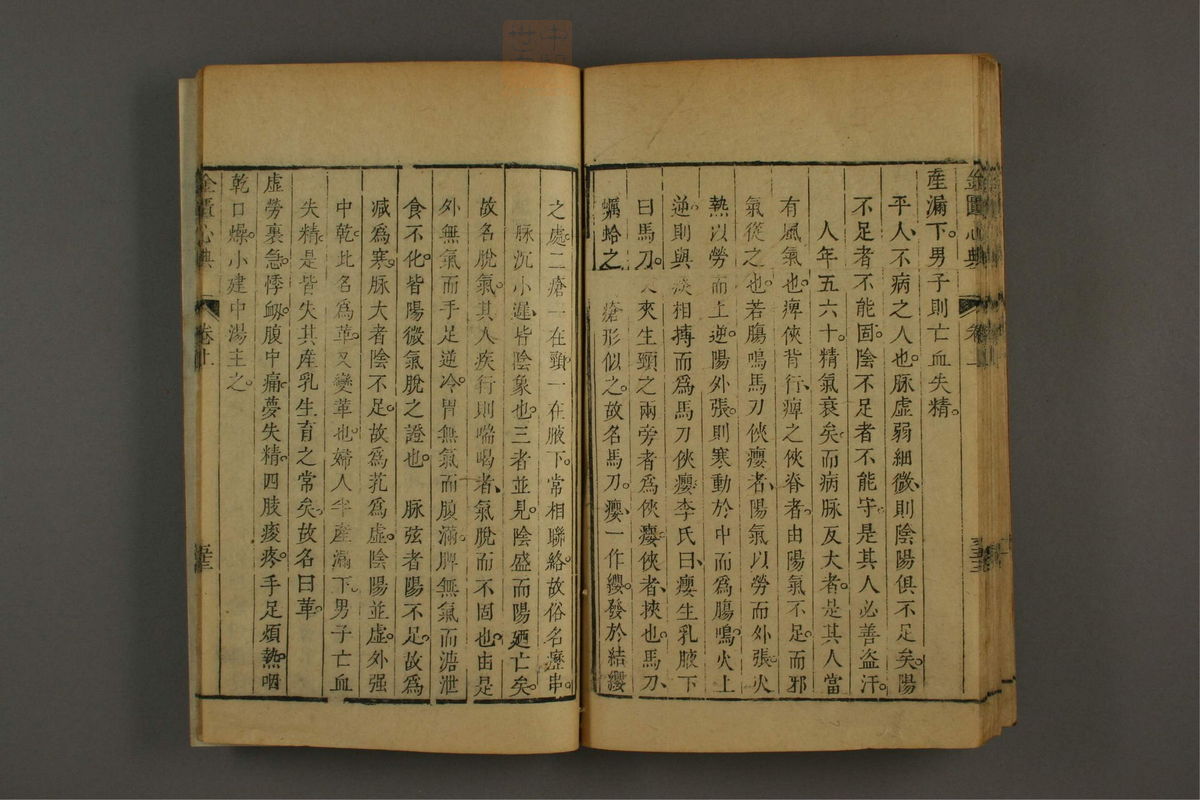 金匱心典
卷上
產漏下。男子則亡血失精。
平人不病之人也。脈虛弱細微則陰陽俱不足矣。陽
不足者不能固。陰不足者不能守。是其人必善盜汗。
人年五六十。精氣衰矣。而病脈反大者。是其人當
有風氣也。痺俠背行。痺之俠脊者。由陽氣不足。而邪
氣從之也。若腸鳴馬刀俠癭者。陽氣以勞而外張。火
熱以勞而上逆。陽外張。則寒動於中而為腸鳴。火上
逆。則與痰相搏而為馬刀俠癭。李氏曰、癭生乳腋下
曰馬刀。又夾生頸之兩旁者為俠癭。俠者、挾也。馬刀、
蠣蛤之 瘡形似之。故名馬刀。癭、一作纓。發於結纓
之處。二瘡一在頸。一在腋下。常相聯絡。故俗名癧串。
脈沉小遲皆陰象也。三者並見。陰盛而陽廼亡矣。
故名脫氣。其人疾行則喘喝者、氣脫而不固也。由是
外無氣而手足逆冷。胃無氣而腹滿。脾無氣而溏泄
食不化。皆陽微氣脫之證也。 脈弦者陽不足。故為
減為寒。脈大者陰不足。故為芤為虛。陰陽並虛。外强
中乾。此名為革。又變革也。婦人半產漏下。男子亡血
失精。是皆失其產乳生育之常矣。故名曰革。
虛勞裏急。悸衂。腹中痛。夢失精。四肢痠疼。手足煩熱。咽
乾口燥。小建中湯主之。
金匱心典
卷上